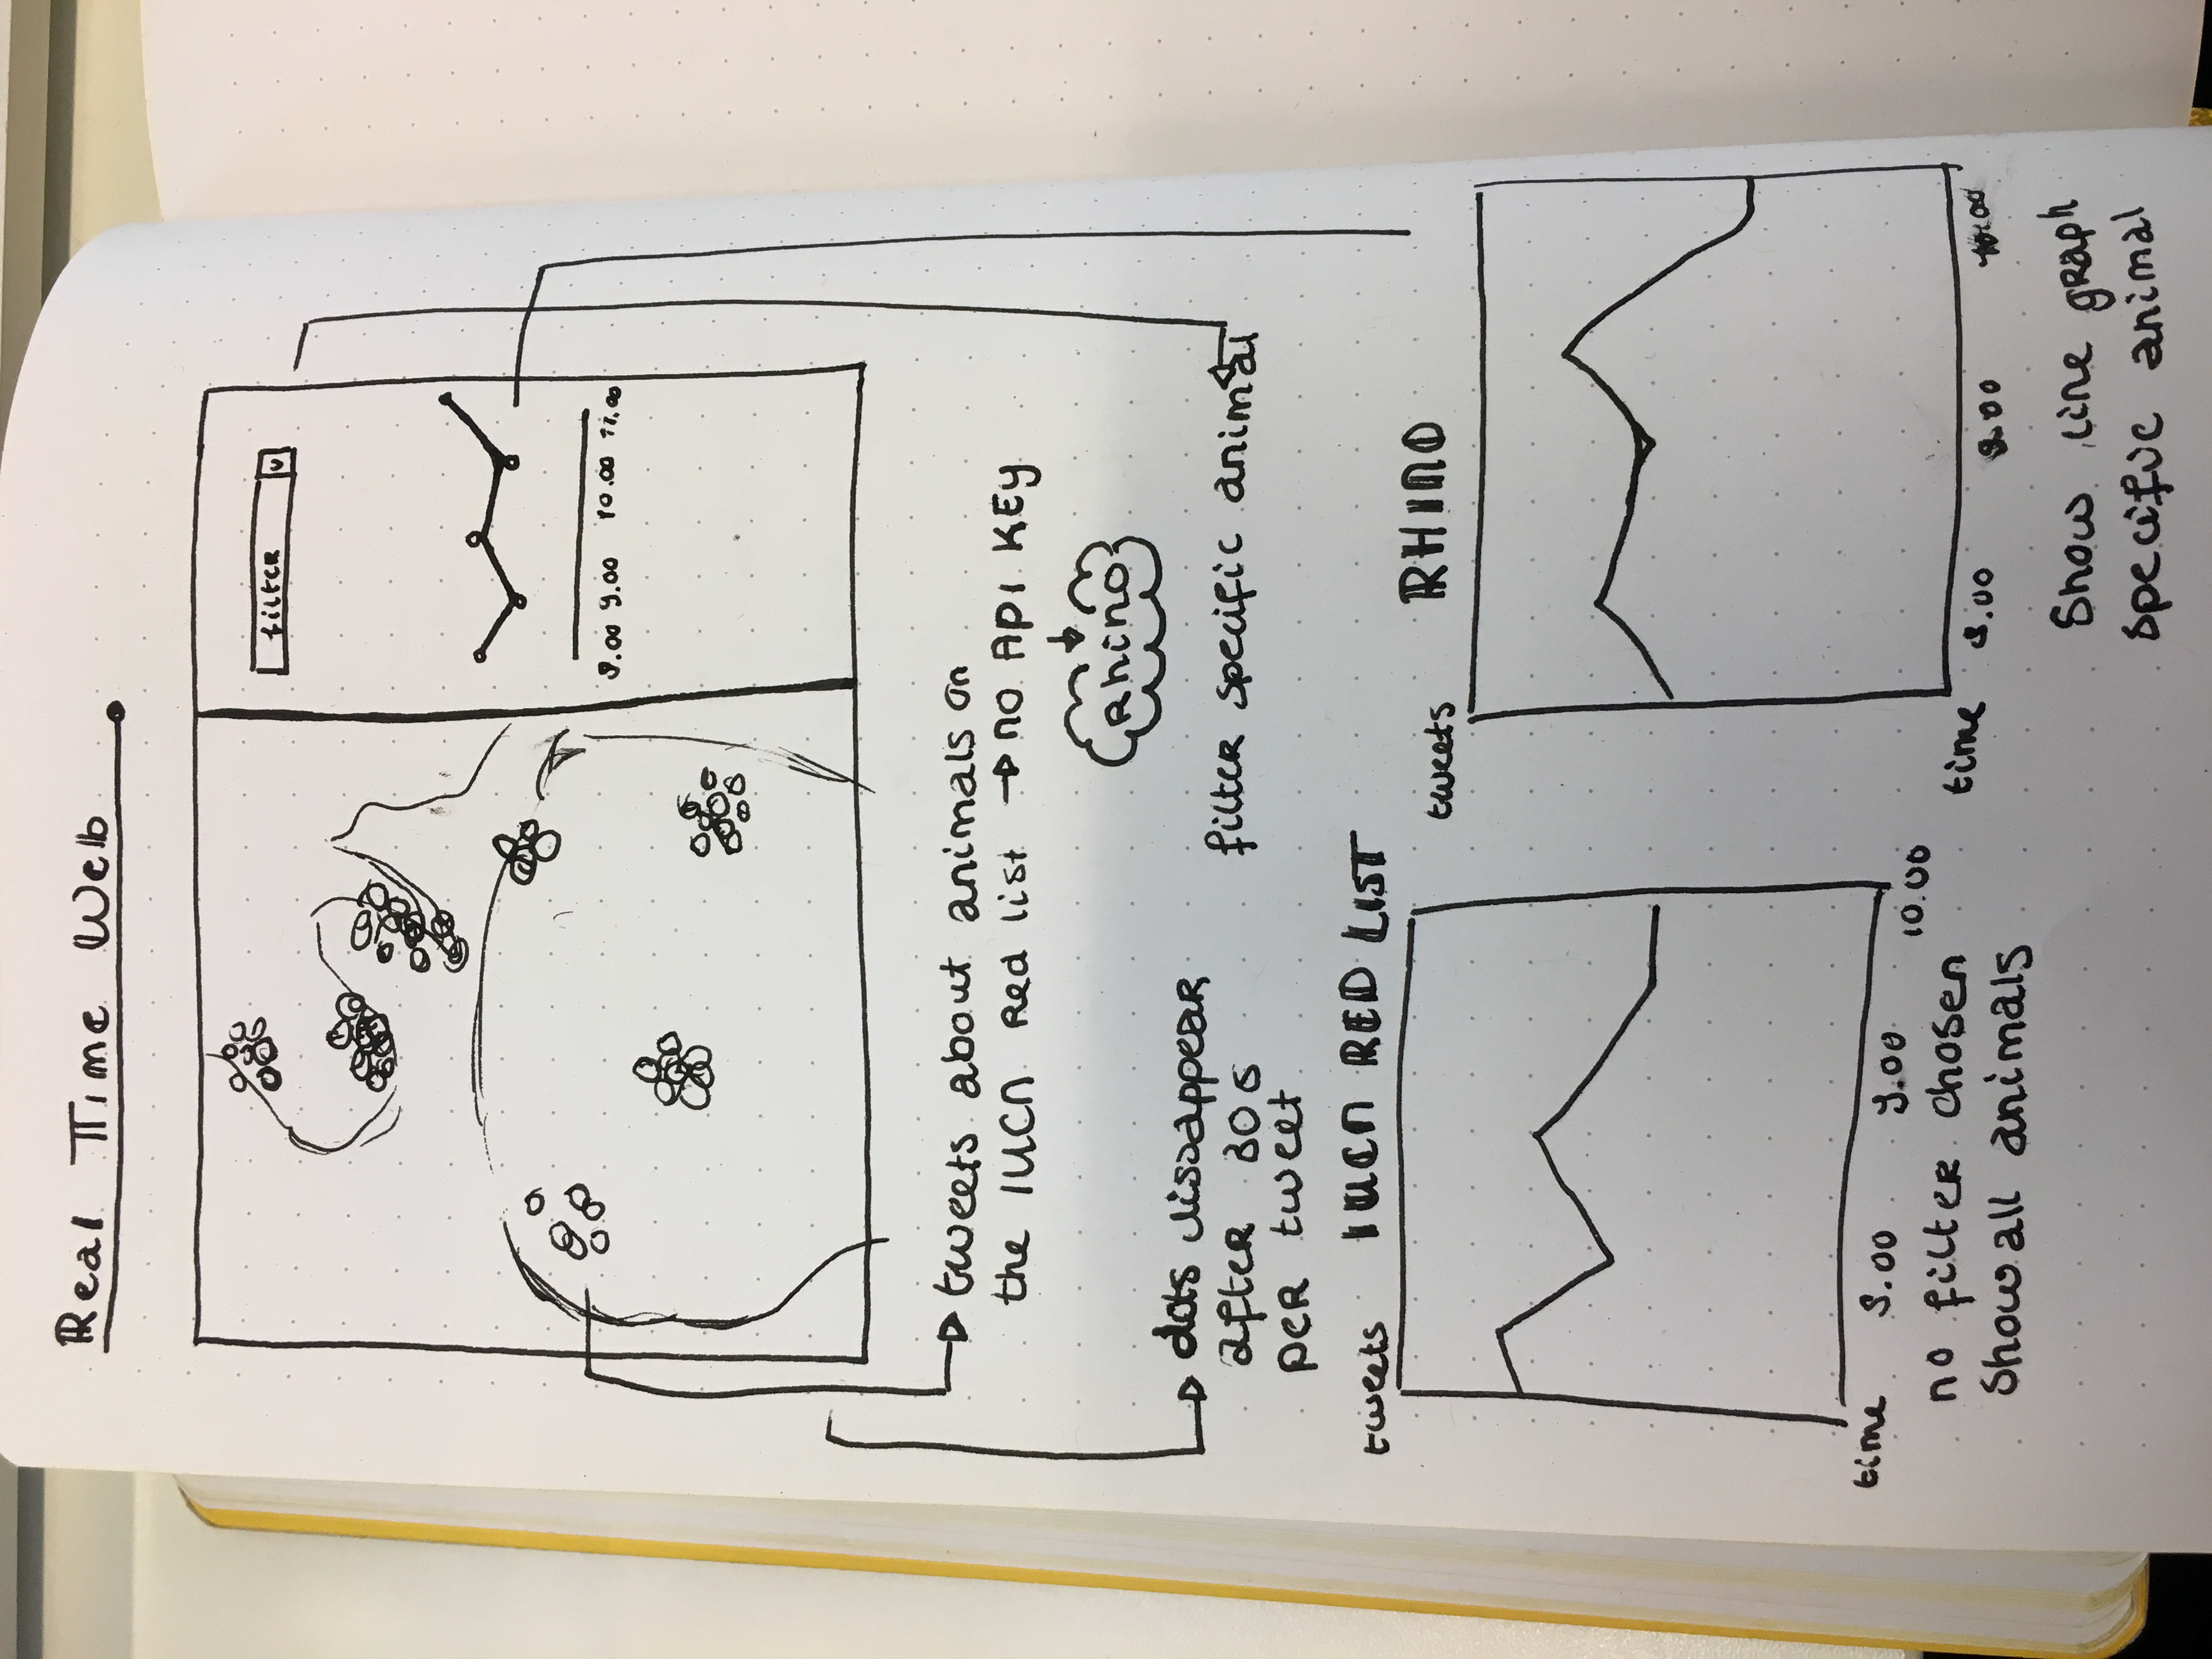 Real Time Web
filter
8.00 9.00 10.00 11.00
tweets about animals on
the IUCN Red list → no API KEY
Rhino
dots dissappear
after 30s
per tweet
filter specific animal
tweets IUCN RED LIST
tweets RHINO
time 8.00 9.00 10.00
no filter chosen
Show all animals
time 8.00 9.00 10.00
Show line graph
specific animal